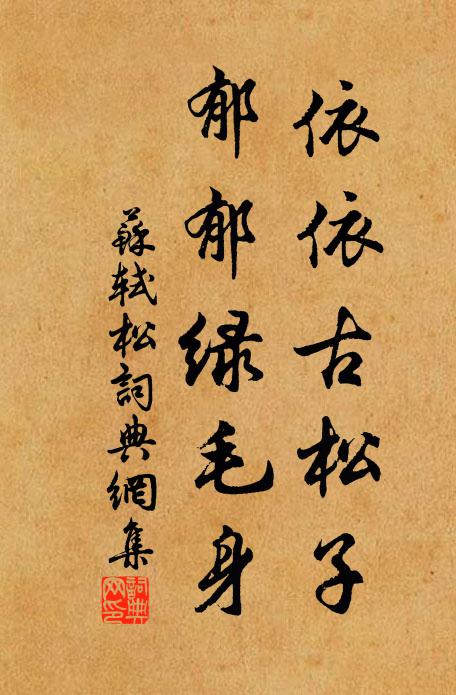 依依古松子
郁郁绿毛身
蘇軾松詞典網集
詞典网印